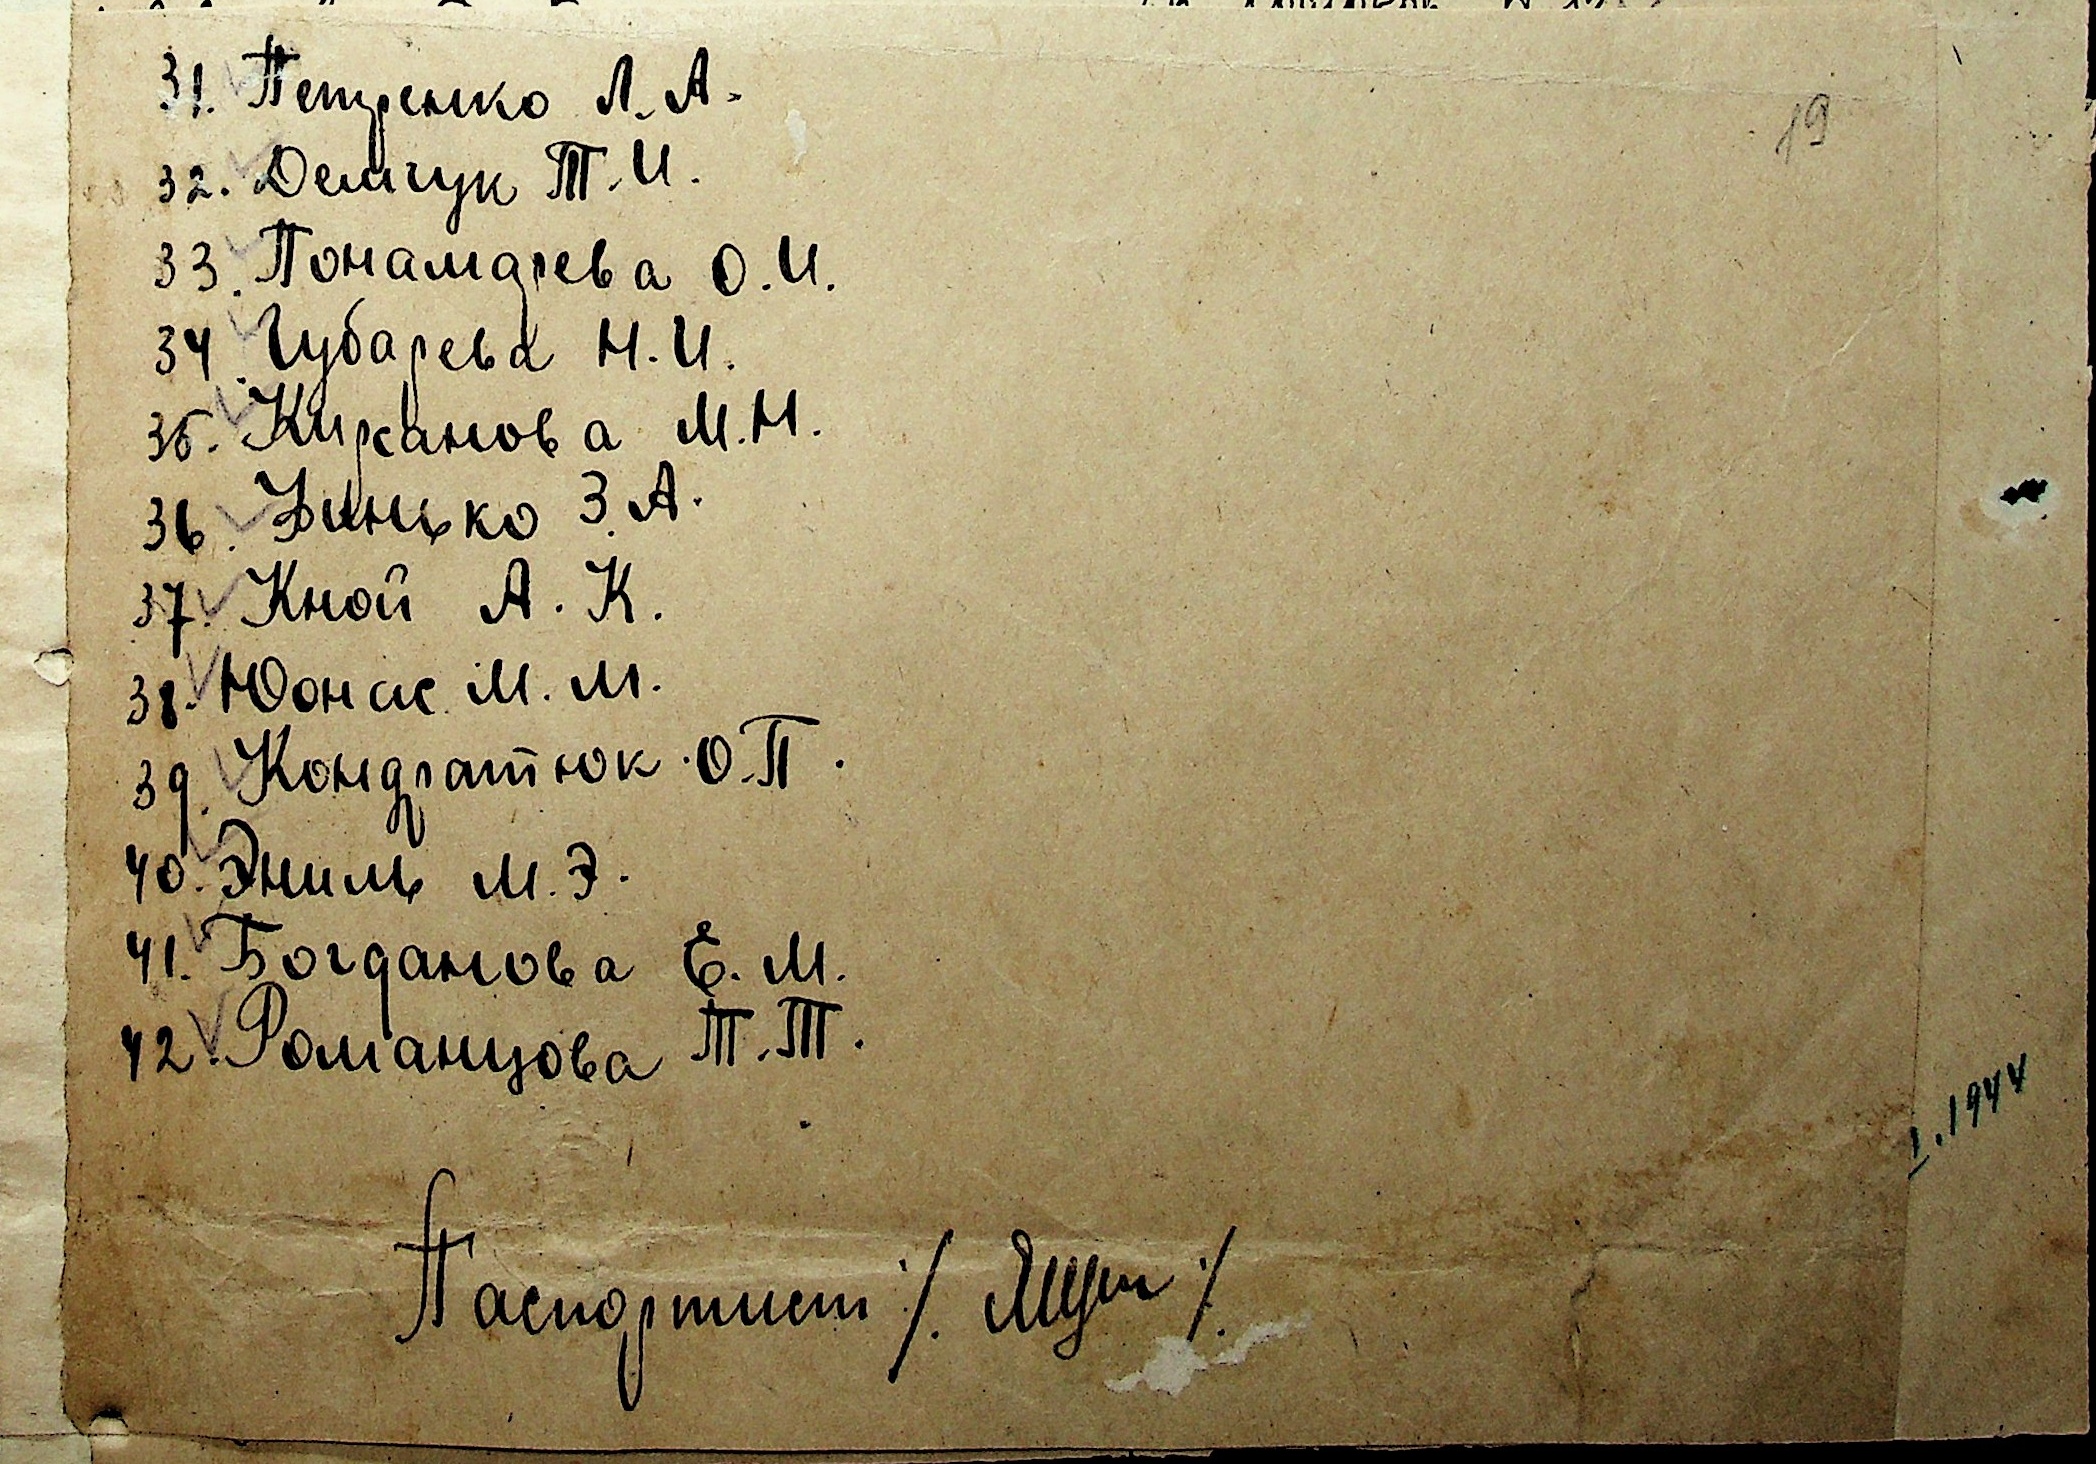 19
31. Петренко Л. А.
32. Демчук Т. И.
33. Понамарева О. И.
34. Губарева Н. И.
35. Кирсанова М. Н.
36. Зинько З. А.
37. Кной А. К.
38. Юонас М. М.
39. Кондратюк О. П.
40. Эниль М. Э.
41. Богданова Е. М.
42. Романцова Т. Т.
I. 1944
Паспортист